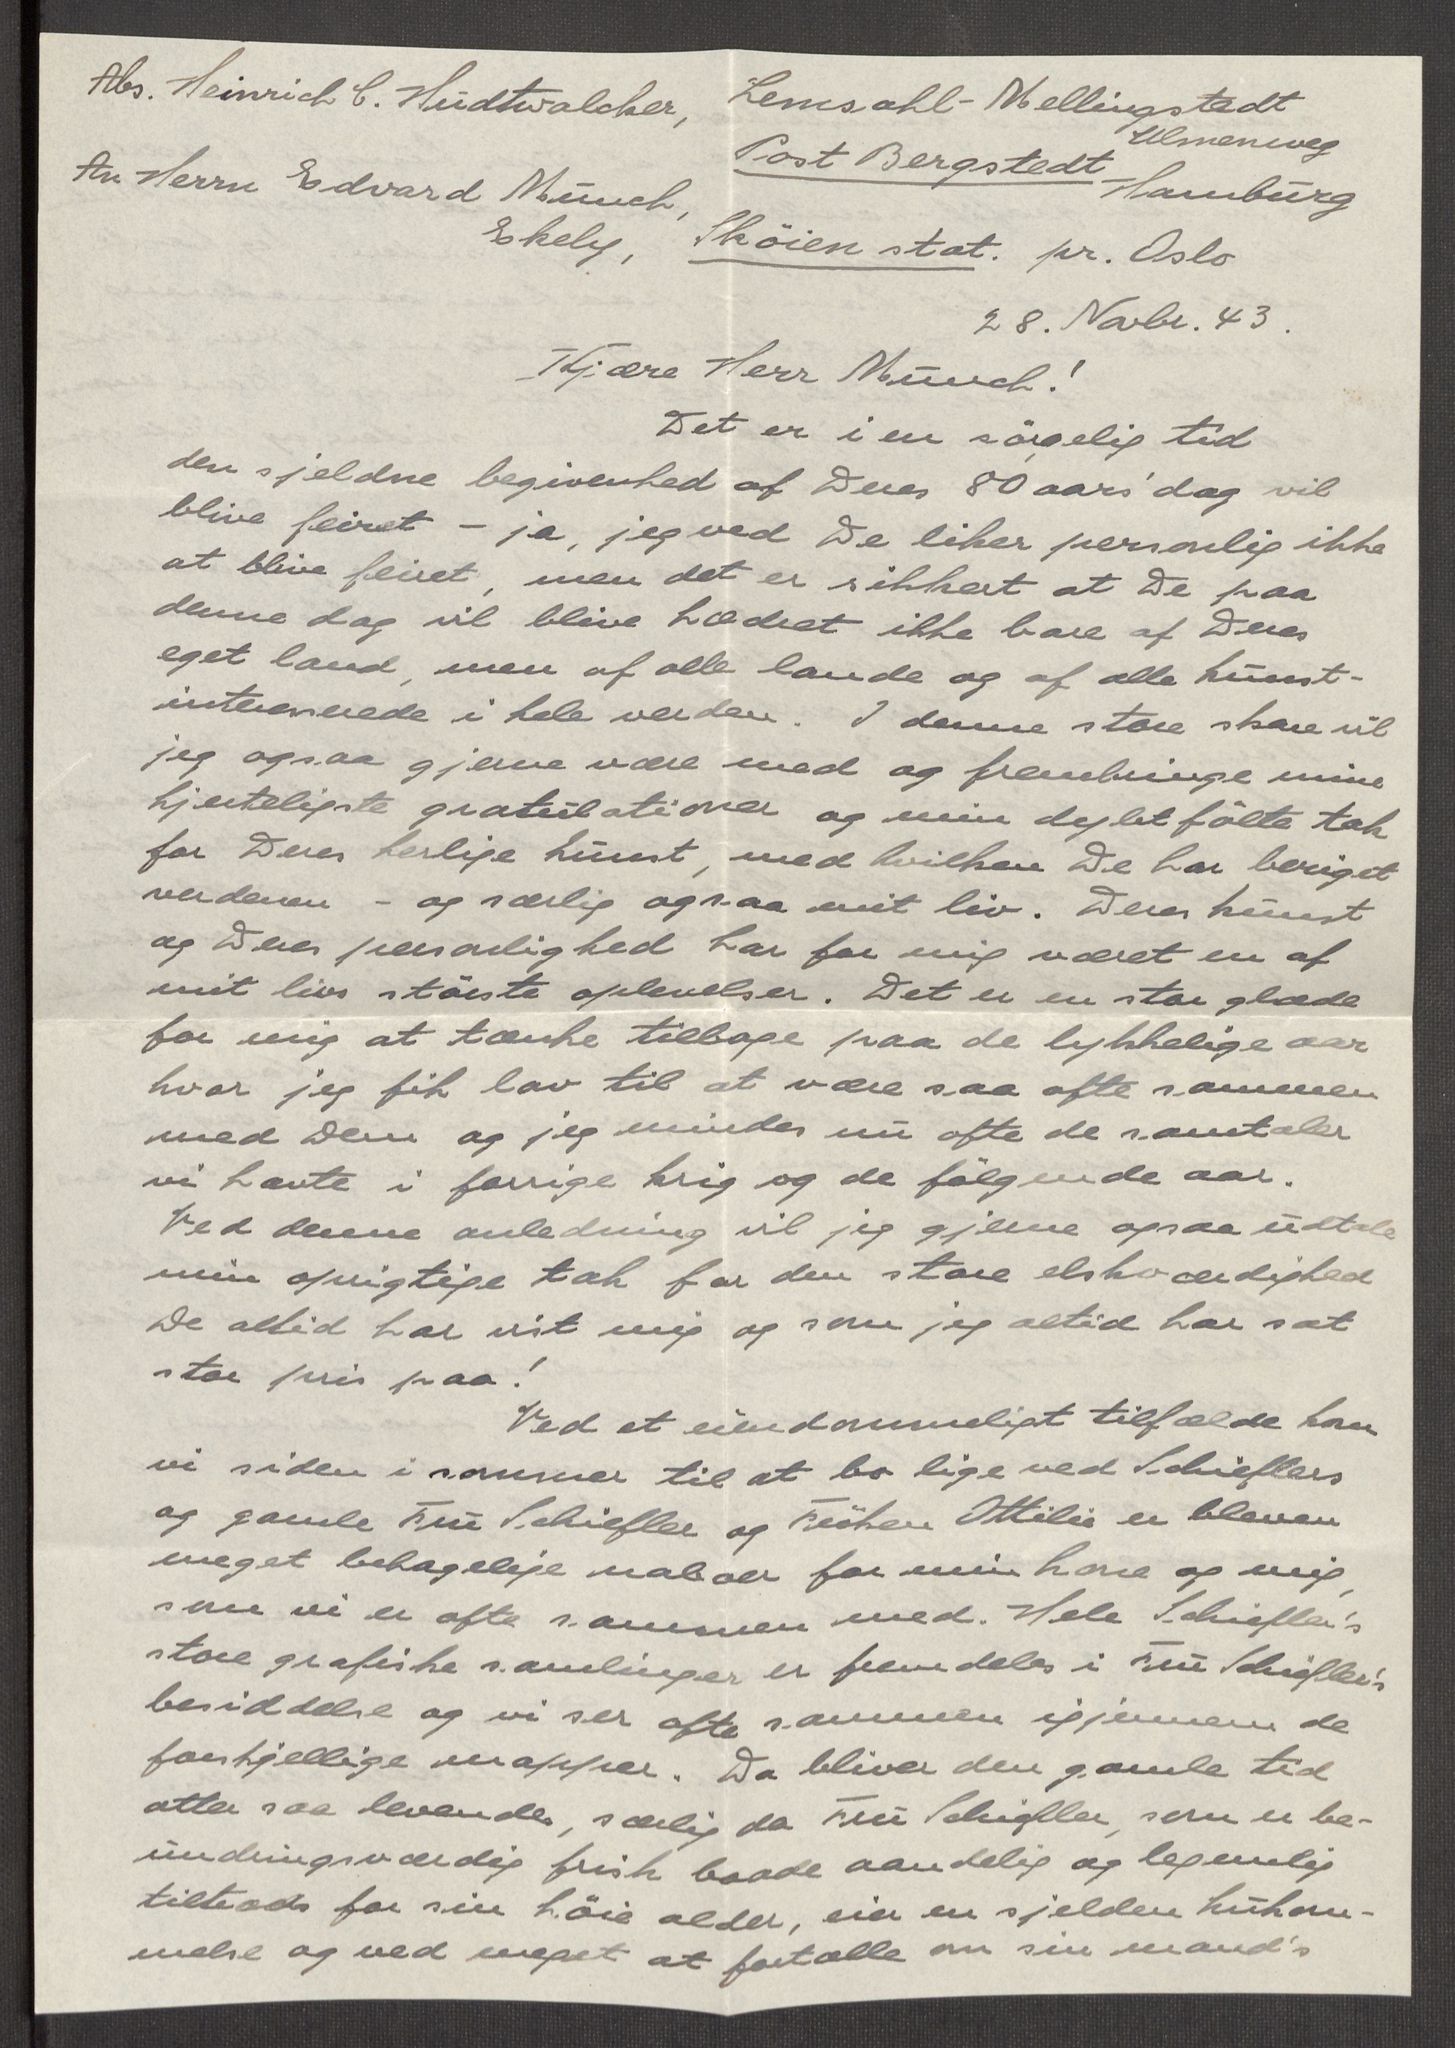 Abs. Heinrich C. Hüdtwalcker, Lemsahl-Mellingstedt
Ulmenweg
Post Bergstedt Hamburg
An Herrn Edvard Münch,
Ekely, Sköien stat. pr. Oslo
28. Novbr. 43.
Kjære Herr Münch!
Det er i en sörgelig tid
den sjeldne begivenhed af Deres 80 aars'dag vil
blive feiret – ja, jeg ved De liker personlig ikke
at blive feiret, men det er sikkert at De paa
denne dag vil blive hædret ikke bare af Deres
eget land, men af alle lande og af alle künst-
interesserede i hele verden. I denne store skare vil
jeg ogsaa gjerne være med og frembringe mine
hjerteligste gratülationer og min dybt fölte tak
for Deres herlige künst, med hvilken De har beriget
verdenen – og særlig ogsaa mit liv. Deres künst
og Deres personlighed har for mig været en af
mit livs störste oplevelser. Det er en stor glæde
for mig at tænke tilbage paa de lykkelige aar
hvor jeg fik lov til at være saa ofte sammen
med Dem og jeg mindes nü ofte de samtaler
vi havte i forrige krig og de fölgende aar.
Ved denne anledning vil jeg gjerne ogsaa üdtale
min oprigtige tak for den store elskværdighed
De altid har vist mig og som jeg altid har sat
stor pris paa!
Ved et eiendommeligt tilfælde kom
vi siden i sommer til at bo lige ved Schieflers
og gamle Frü Schiefler og Fröken Ottilie er bleven
meget behagelige naboer for min kone og mig,
som vi er ofte sammen med. Hele Schiefler's
store grafiske samlinger er fremdeles i Frü Schiefler's
besiddelse og vi ser ofte sammen igjennem de
forskjellige mapper. Da bliver den gamle tid
atter saa levende, særlig da Frü Schiefler, som er be-
ündringsværdig frisk baade aandelig og legemlig
tiltrods for sin höie alder, eier en sjelden hükom-
melse og ved meget at fortælle om sin mand's